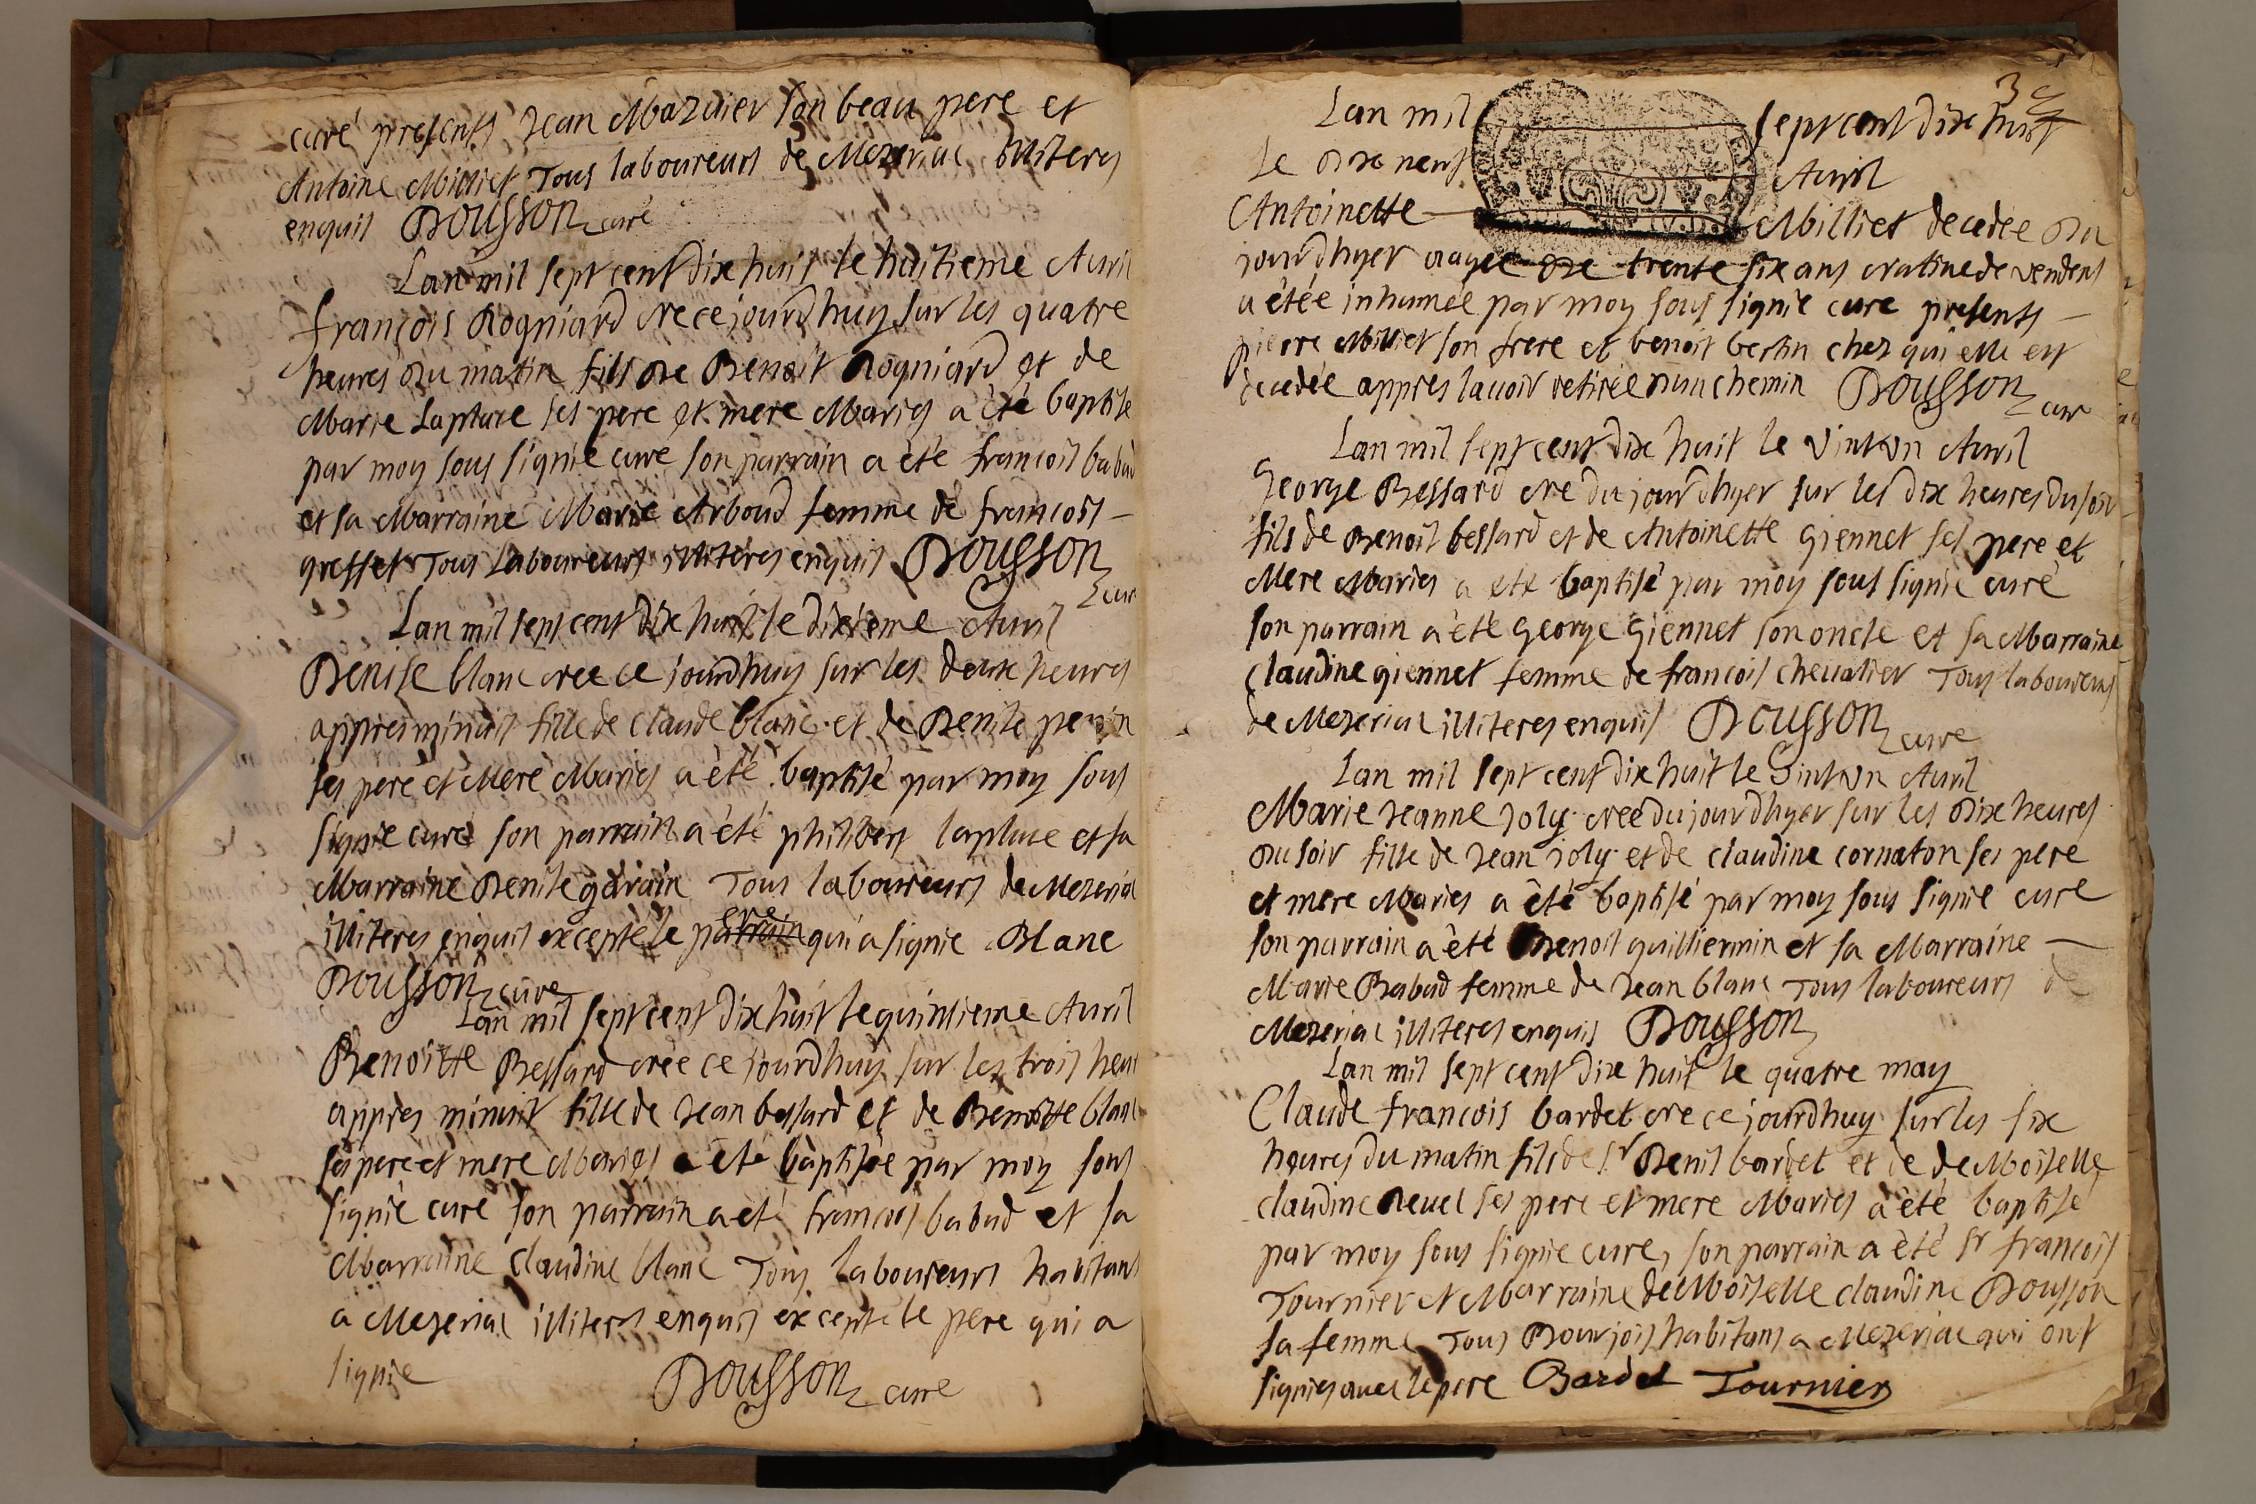 curé presents Jean Mazuier son beau pere et
Antoine Milliet Tous laboureurs de Mezeriac illiteres
enquis Dousson curé
Lan mil sept cent dix huit le huitieme Avril
françois Rogniard nee ce jourdhuy sur les quatre
heures du matin fils de Benoit Rogniard et de
Marie Laplace ses pere et mere Mariés a èté baptisé
par moy sous signié curé son parrain a été francois babud
et sa Marraine Marie Arboud femme de francois
greffet Tous Laboureurs illiterés enquis Dousson
cure
Lan mil sept cent dix huit le dixieme Avril
Denise blanc nee ce jourdhuy sur les deux heures
appres minuit fille de claude blanc et de Denise
ses pere et Mere Mariés a été baptisé par moy sous
signie curé son parrain a été philibert laplace et sa
Marraine Denise garain Tous laboureurs de Mezeriac
illiteres enquis excepté le pere qui a signie Blanc
Dousson cure
Lan mil sept cent dix huit le quinzieme Avril
Benoitte Bessard née ce jourdhuy sur les trois heur
appres minuit fille de Jean bessard et de Benoitte blanc
ses pere et mere Mariés a été baptisée par moy sous
signié curé son parrain a eté francois babud et sa
Marraine claudine blanc Tous laboureurs habitants
a Mezeriac illiteres enquis excepté le pere qui a
signie
Dousson cure
3
Lan mil sept cent dix huit
le dix neuf Avril
Antoinette Milliet decedee du
jourdhyer agée de trente six ans de vendens
a étée inhumée par moy sous signié cure presents
pierre Milliet son frere et benoit bertin chez qui elle est
decedée appres lavoir retirée dun chemin Dousson
cure
Lan mil sept cent dix huit le vintun Avril
George Bessard ne du jourdhyer sur les dix heures du soir
fils de Benoit bessard et de Antoinette giennet ses pere et
Mere Mariés a été baptisé par moy sous signie curé
son parrain a été George Giennet son oncle et sa Marraine
claudine giennet femme de francois chevalier Tous laboureurs
de Mezeriac illiteres enquis Dousson cure
Lan mil sept cent dix huit le vintun Avril
Marie Jeanne joly nee du jourdhyer sur les dix heures
du soir fille de Jean joly et de claudine cornaton ses pere
et mere Mariés a èté baptisé par moy sous signie cure
son parrain a été Benoit guilliermin et sa Marraine
Marie Babud femme de Jean blanc Tous laboureurs de
Mezeriac illiteres enquis Dousson
Lan mil sept cent dix huit le quatre may
Claude francois bardet ne ce jourdhuy sur les six
heures du matin fils de Sr Denis bardet et de deMoiselle
claudine Revel ses pere et mere Mariés a été baptisé
par moy sous signie cure, son parrain a èté Sr francois
Tournier et Marraine deMoiselle claudine Dousson
sa femme Tous Bourjois habitans a Mezeriac qui ont
signiés avec le pere Bardet Tournier